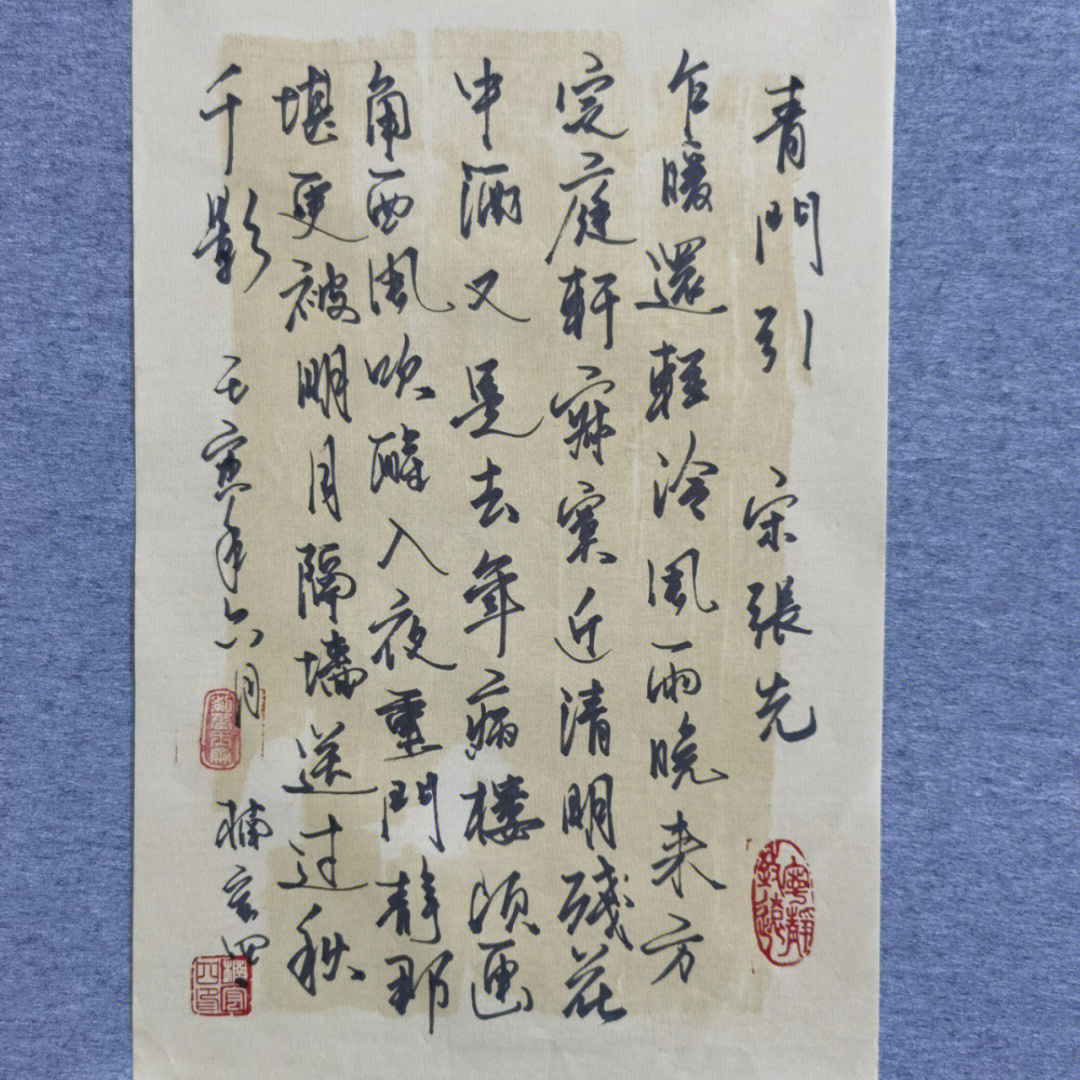 青門引 宋張先
乍暖還輕冷風雨晚来方
定庭軒寂寞近清明殘花
中酒又是去年病樓頭画
角西風吹醒入夜重門靜那
堪更被明月隔墻送过秋
千影 壬寅年六月
寧靜致遠